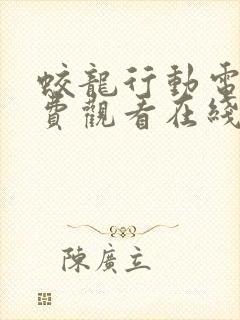 蛟龍行動電
費觀看在綫
陳廣立